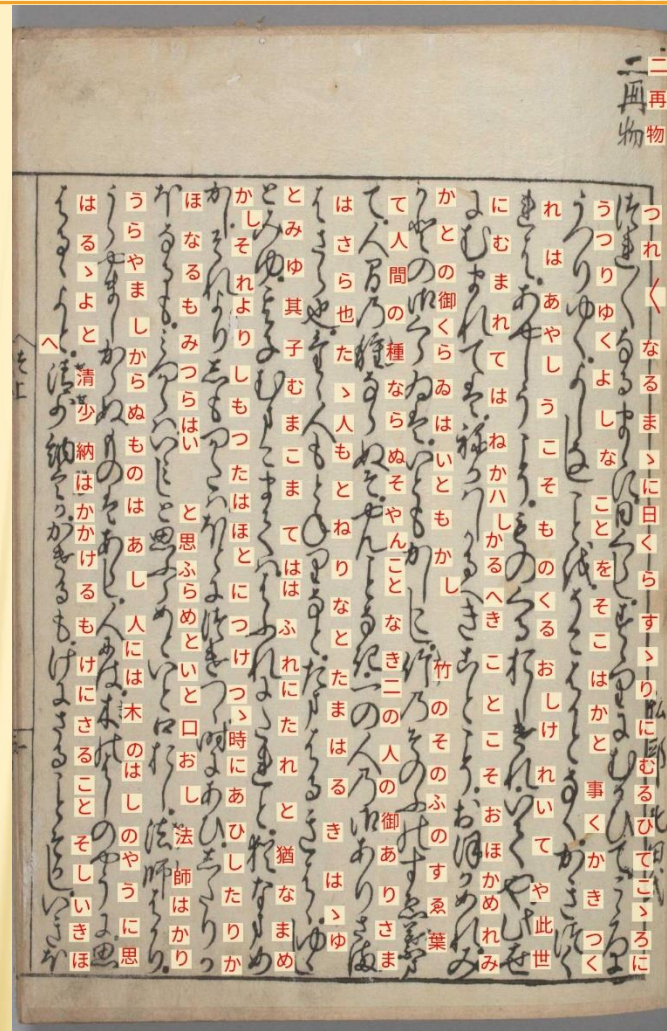 二再物
つれ〱なるまゝに日くらすゝりにむるひてこゝろに
うつりゆくよしなことをそこはかと事くかきつく
れはあやしうこそものくるおしけれいてや此世
にむまれてはねかハしかるへきことこそおほかめれみ
かとの御くらゐはいともかし竹のそのふのすゑ葉
て人間の種ならぬそやんことなき二の人の御ありさま
はさら也たゝ人もとねりなとたまはるきはゝゆ
とみゆ其子むまこまてははふれにたれと猶なまめ
かしそれよりしもつたはほとにつけつゝ時にあひしたりか
ほなるもみつらはいと思ふらめといと口おし法師はかり
うらやましからぬものはあし人には木のはしのやうに思
はるゝよと清少納はかかけるもけにさることそしいきほ
へ